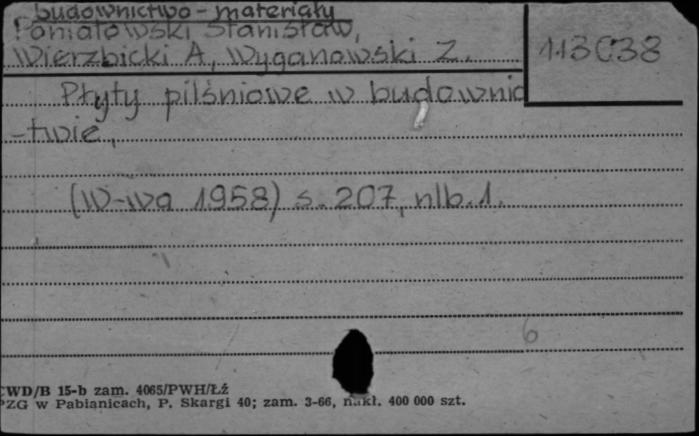 budownictwo - materiały
Poniatowski Stanisław,
Wierzbicki A, Wyganowski Z.
113038
Płyty pilśniowe w budownic
-twie,
(W-wa 1958) s. 207, nlb. 1.
6
CWD/B 15-b zam. 4065/PWH/Łź
PZG w Pabianicach, P. Skargi 40; zam. 3-66, nakł. 400 000 szt.